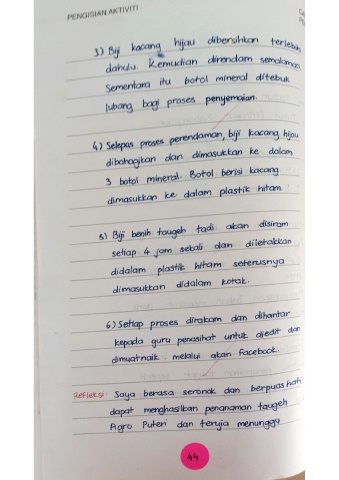 PENGISIAN AKTIVITI
3) Biji kacang hijau dibersihkan terlebih
dahulu. Kemudian direndam semalaman
Sementara itu botol mineral ditebuk
lubang bagi proses penyemaian.
4) Selepas proses perendaman, biji kacang hijau
dibahagikan dan dimasukkan ke dalam
3 botol mineral. Botol berisi kacang
dimasukkan ke dalam plastik hitam.
5) Biji benih taugeh tadi akan disiram
setiap 4 jam sekali dan diletakkan
didalam plastik hitam seterusnya
dimasukkan didalam kotak.
6) Setiap proses dirakam dan dihantar
kepada guru penasihat untuk diedit dan
dimuatnaik melalui akan Facebook.
Refleksi: Saya berasa seronok dan berpuas hati
dapat menghasilkan penanaman taugeh
Agro Puteri dan teruja menunggu
44